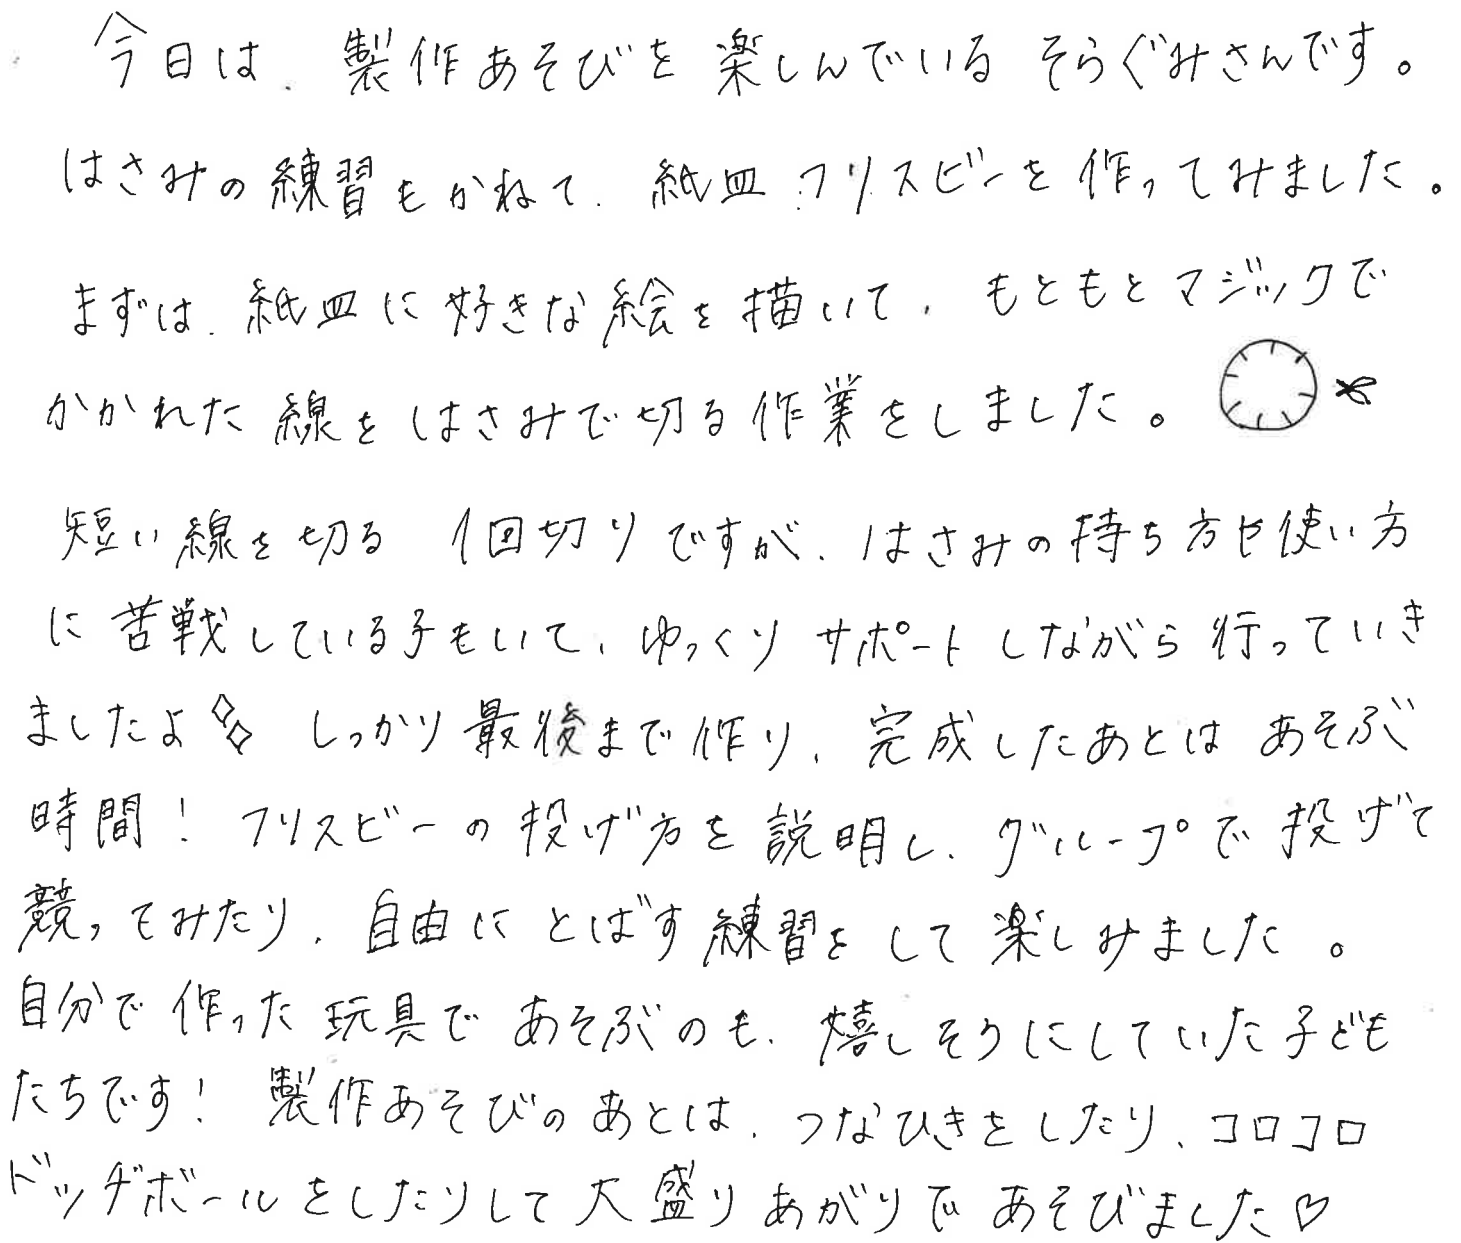 今日は、製作あそびを楽しんでいる そらぐみさんです。
はさみの練習もかねて、紙皿フリスビーを作ってみました。
まずは、紙皿に好きな絵を描いて、もともとマジックで
かかれた線をはさみで切る作業をしました。
短い線を切る 1回切りですが、はさみの持ち方や使い方
に苦戦している子もいて、ゆっくりサポートしながら行っていき
ましたよ しっかり最後まで作り、完成したあとは あそぶ
時間! フリスビーの投げ方を説明し、グループで投げて
競ってみたり、自由に とばす練習をして楽しみました。
自分で作った玩具であそぶのも、嬉しそうにしていた子ども
たちです! 製作あそびのあとは、つなひきをしたり、コロコロ
ドッヂボールをしたりして大盛りあがりであそびました♡